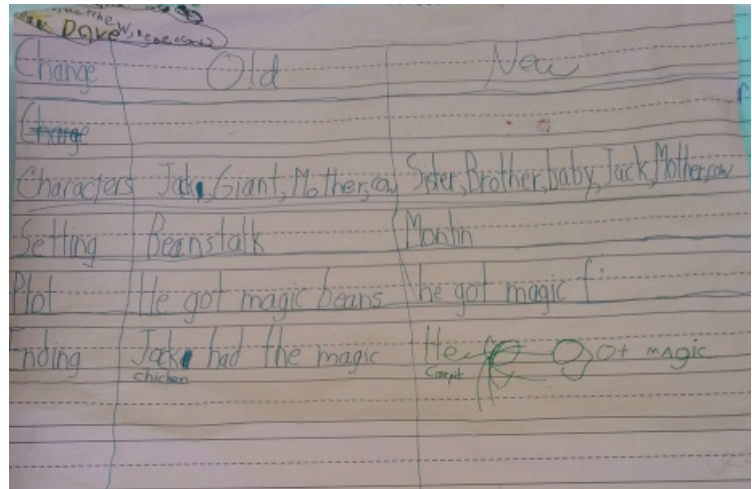 Dake
Change Old New
Change
Characters Jack, Giant, Mother, cow Sister, Brother, baby, Jack, Mother, cow
Setting Beanstalk Montin
Plot He got magic beans he got magic
Ending Jack had the magic He got magic
chicken Carpit